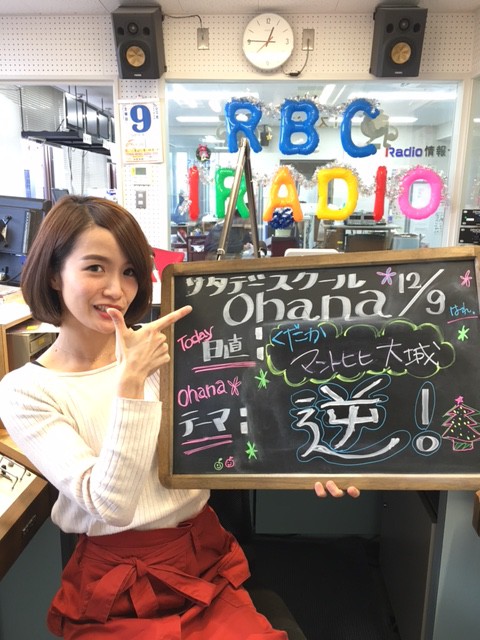 9
RBC
iRADIO
iRadio情報
サタデースクール
Ohana 12/9
はれ。
Today
日直:
くだか
マントヒヒ大城
Ohana
テーマ:
逆!